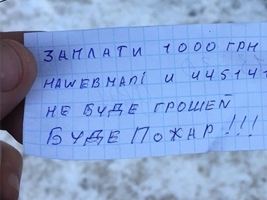 ЗАПЛАТИ 1000 ГРН
НАWEBМАNІ И 445141
НЕ БУДЕ ГРОШЕЙ
БУДЕ ПОЖАР!!!